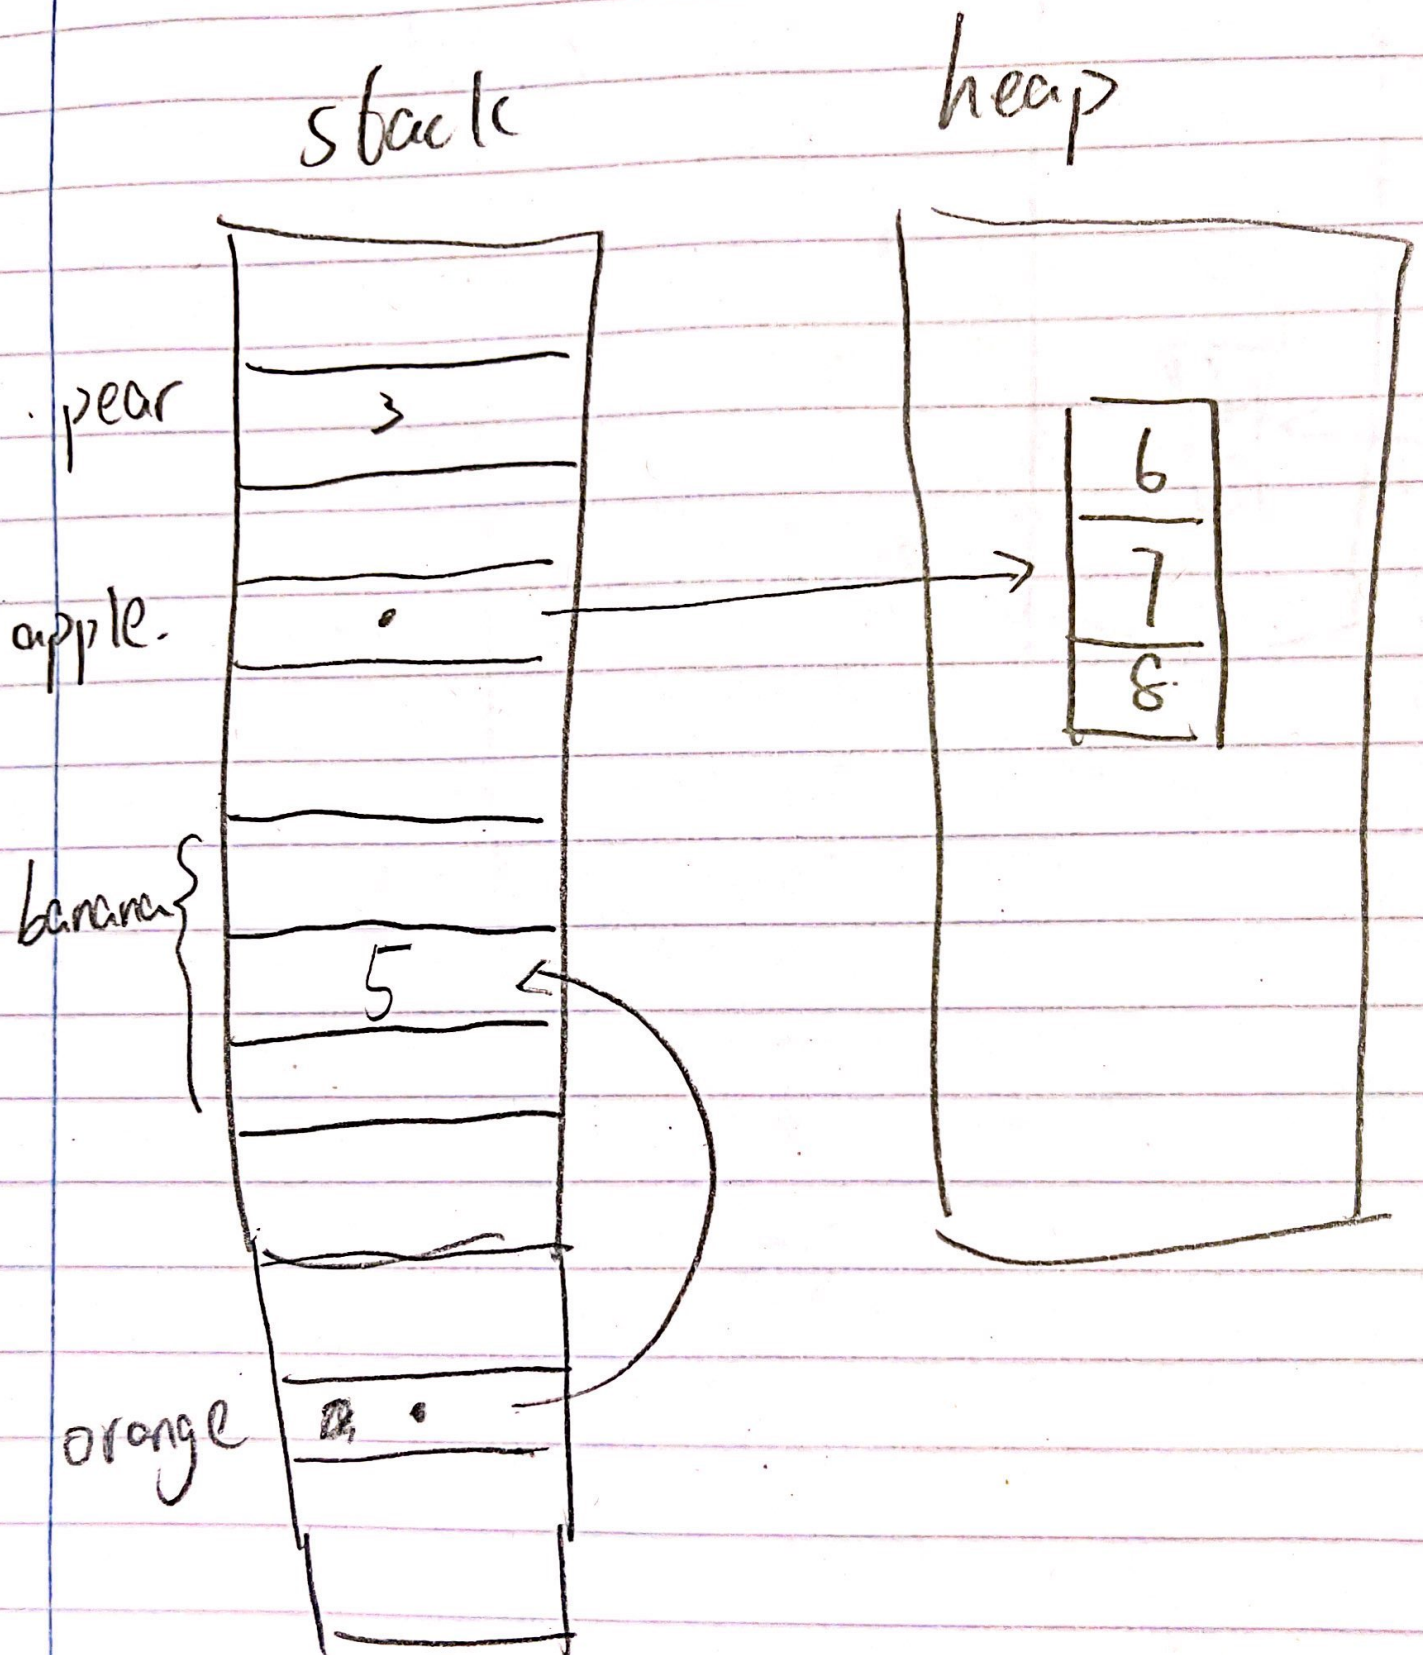 stack heap
pear 3
6
apple. 7
8
banana 5
orange